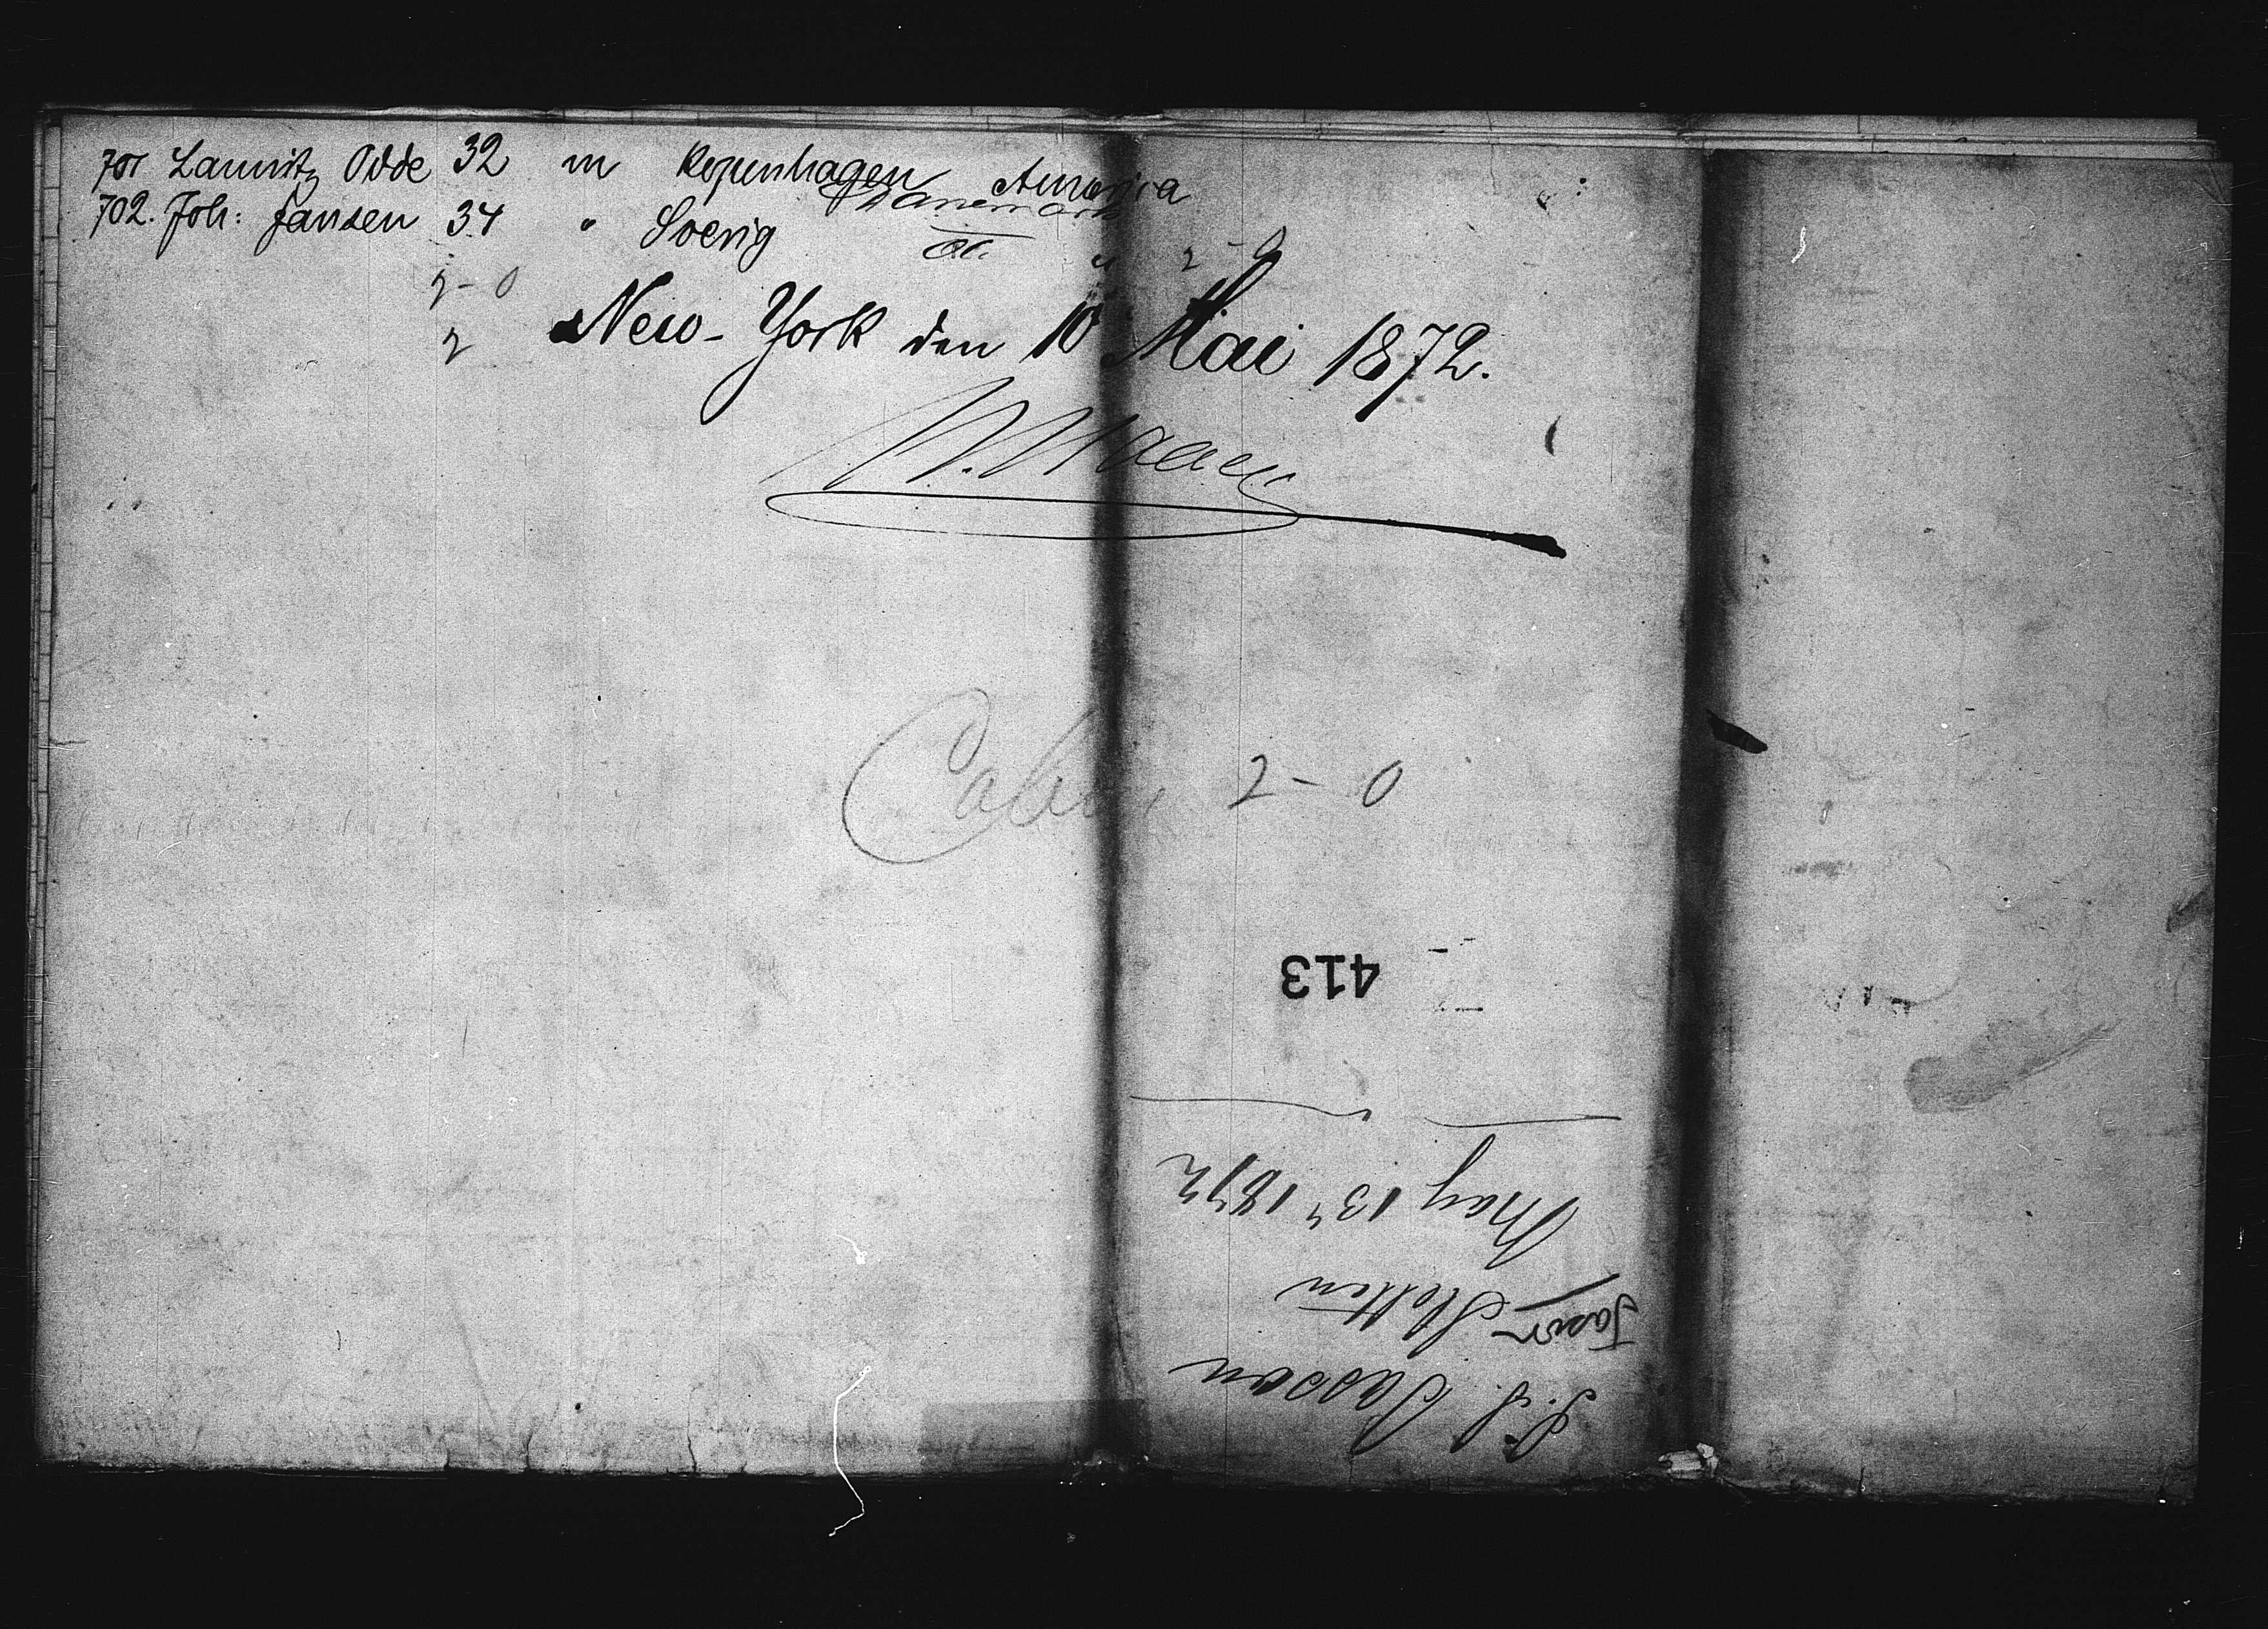 701 Launitz Odde 32 m Kopenhagen America
Danemark
702. Joh: Jansen 34 " Soerig do.
2-0 2-0
2 New-York den 10 Mai 1872.
Cabin 2-0
413
S.S.
Stettin
May 13" 1872